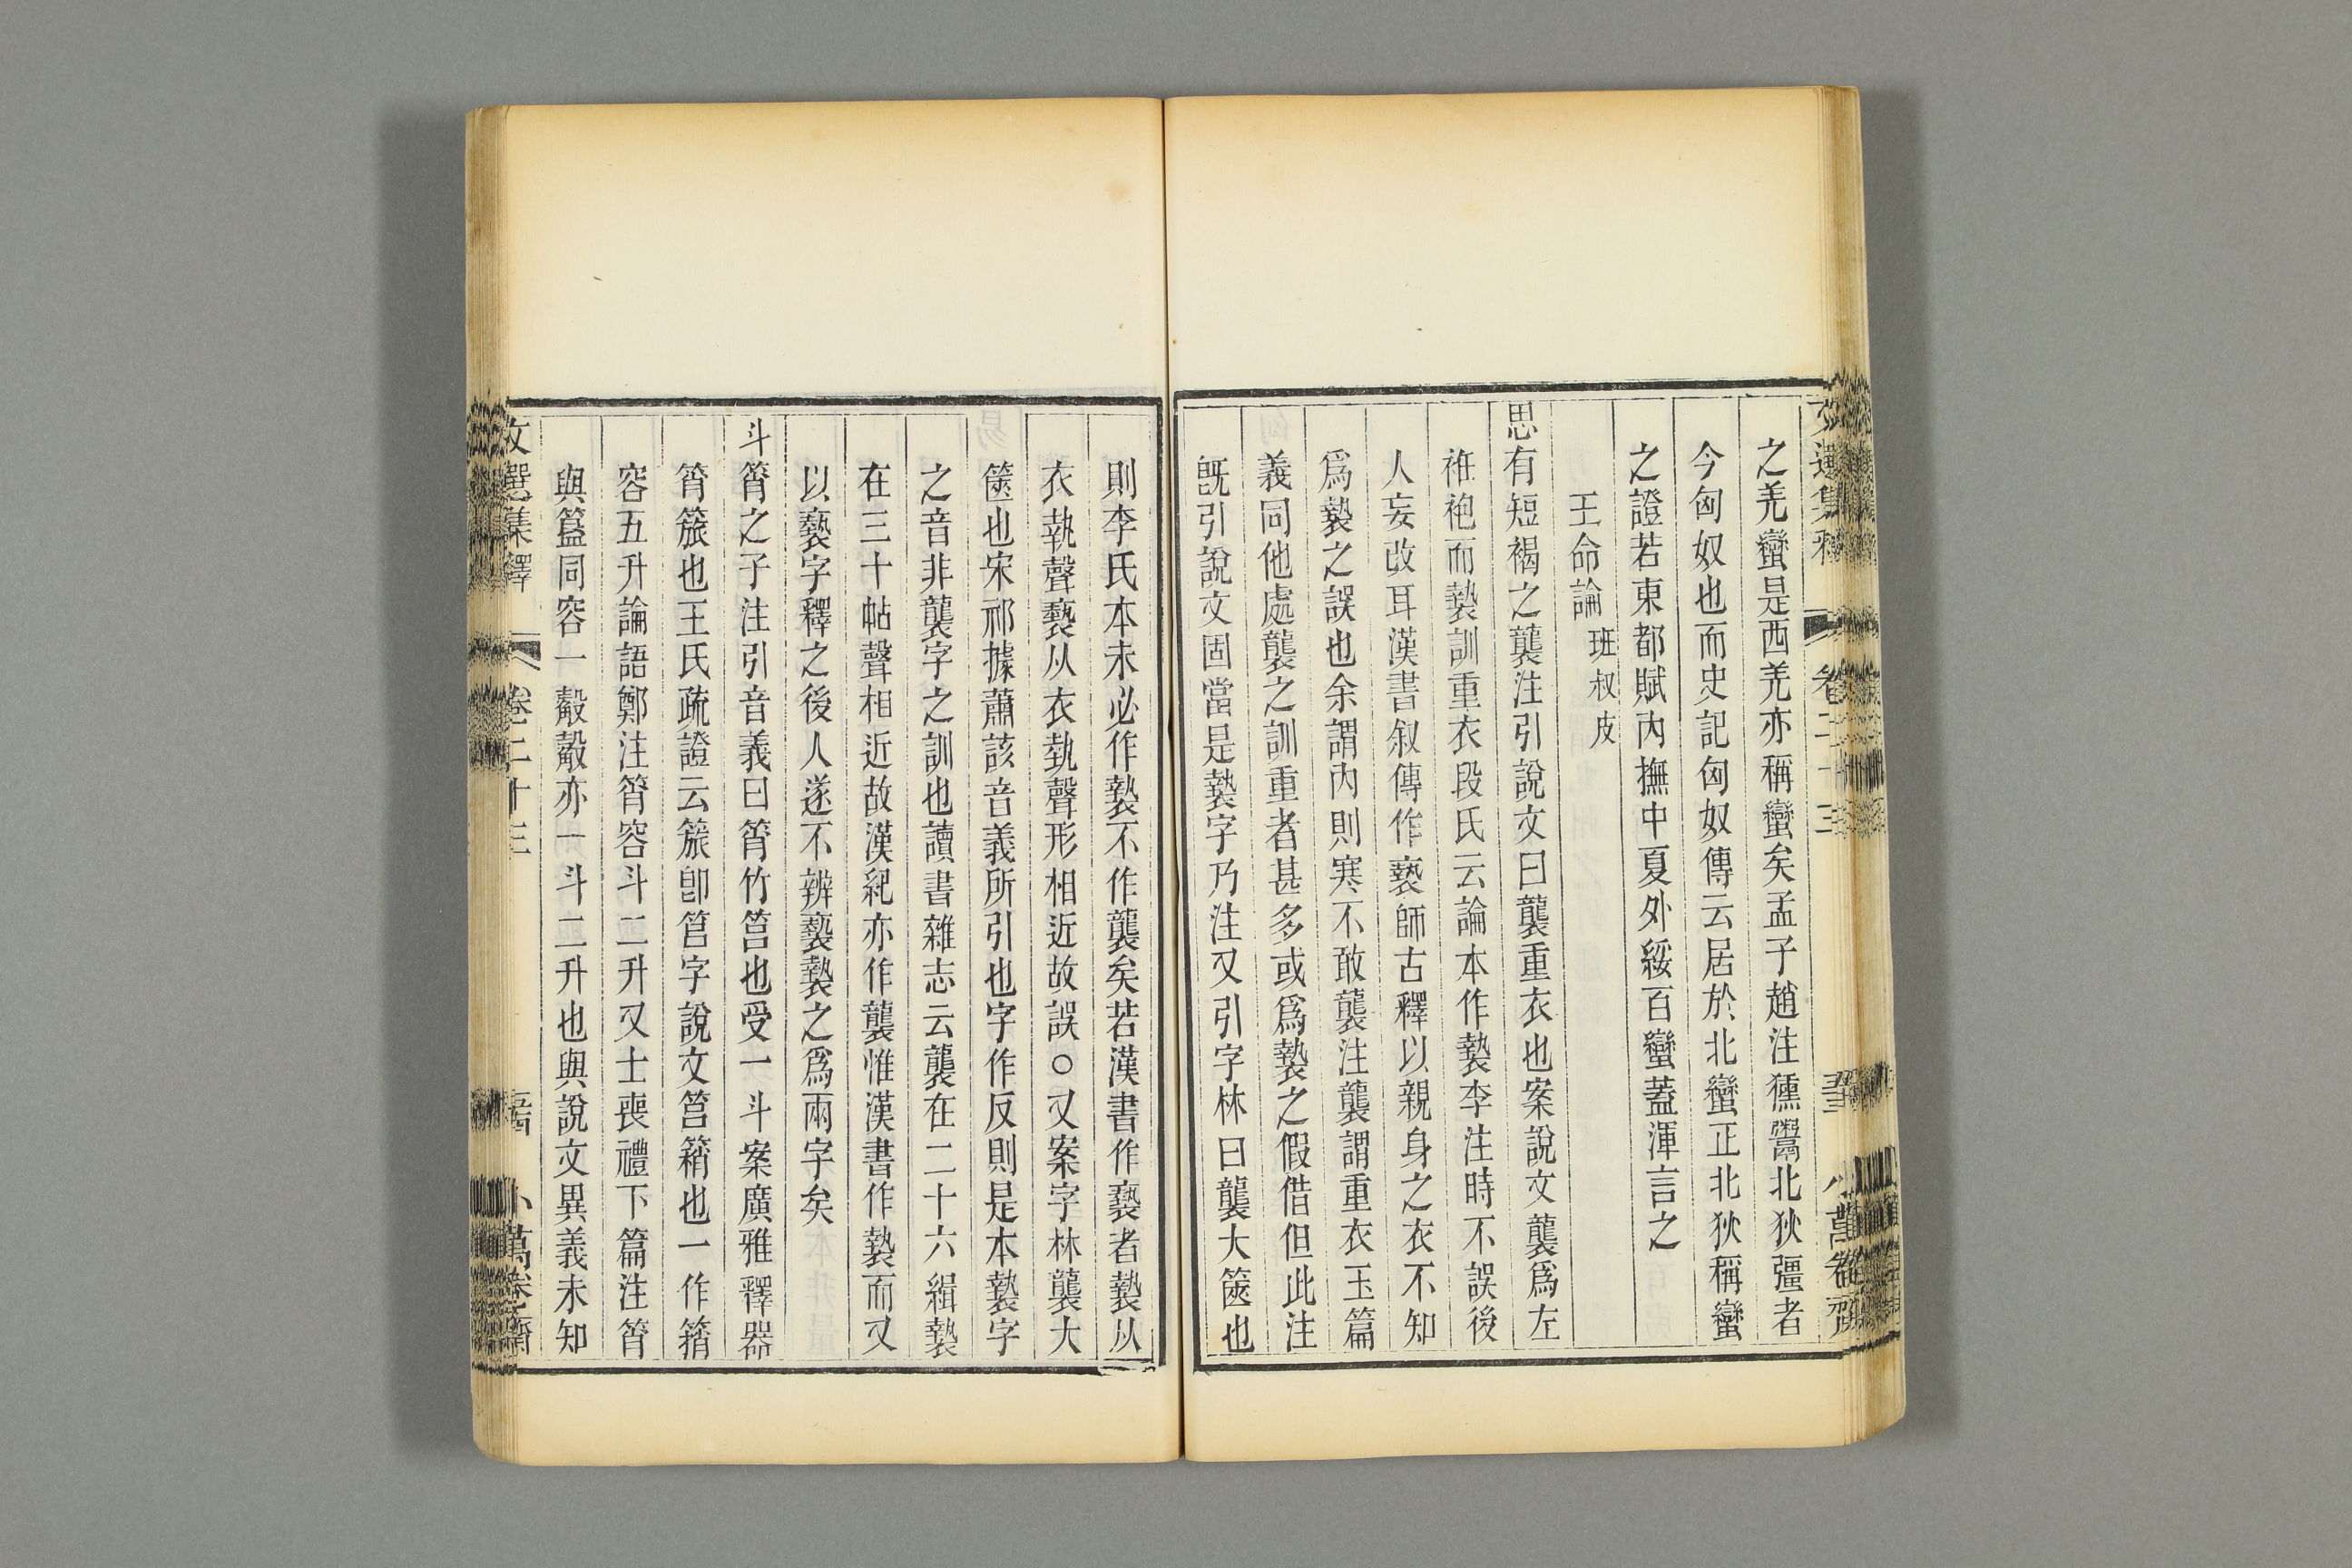 之羌蠻是西羌亦稱蠻矣孟子趙注獯鬻北狄彊者
今匈奴也而史記匈奴傳云居於北蠻正北狄稱蠻
之證若東都賦內撫中夏外綏百蠻蓋渾言之
王命論 班叔皮
思有短褐之襲注引說文曰襲重衣也案說文襲爲左
衽袍而褺訓重衣段氏云論本作褺李注時不誤後
人妄改耳漢書叙傳作褻師古釋以親身之衣不知
爲褺之誤也余謂內則寒不敢襲注襲謂重衣玉篇
義同他處襲之訓重者甚多或爲褺之假借但此注
旣引說文固當是褺字乃注又引字林曰襲大篋也
則李氏本未必作褺不作襲矣若漢書作褻者褺从
衣執聲褻从衣埶聲形相近故誤○又案字林襲大
篋也宋祁據蕭該音義所引也字作反則是本褺字
之音非襲字之訓也讀書雜志云襲在二十六緝褺
在三十帖聲相近故漢紀亦作襲惟漢書作褺而又
以褻字釋之後人遂不辨褻褺之爲兩字矣
斗筲之子注引音義曰筲竹筥也受一斗案廣雅釋器
筲籏也王氏疏證云籏卽筥字說文筥䈰也一作箱
容五升論語鄭注筲容斗二升又士喪禮下篇注筲
與簋同容一觳觳亦一斗二升也與說文異義未知
文選集釋 卷二十三 小萬卷齋